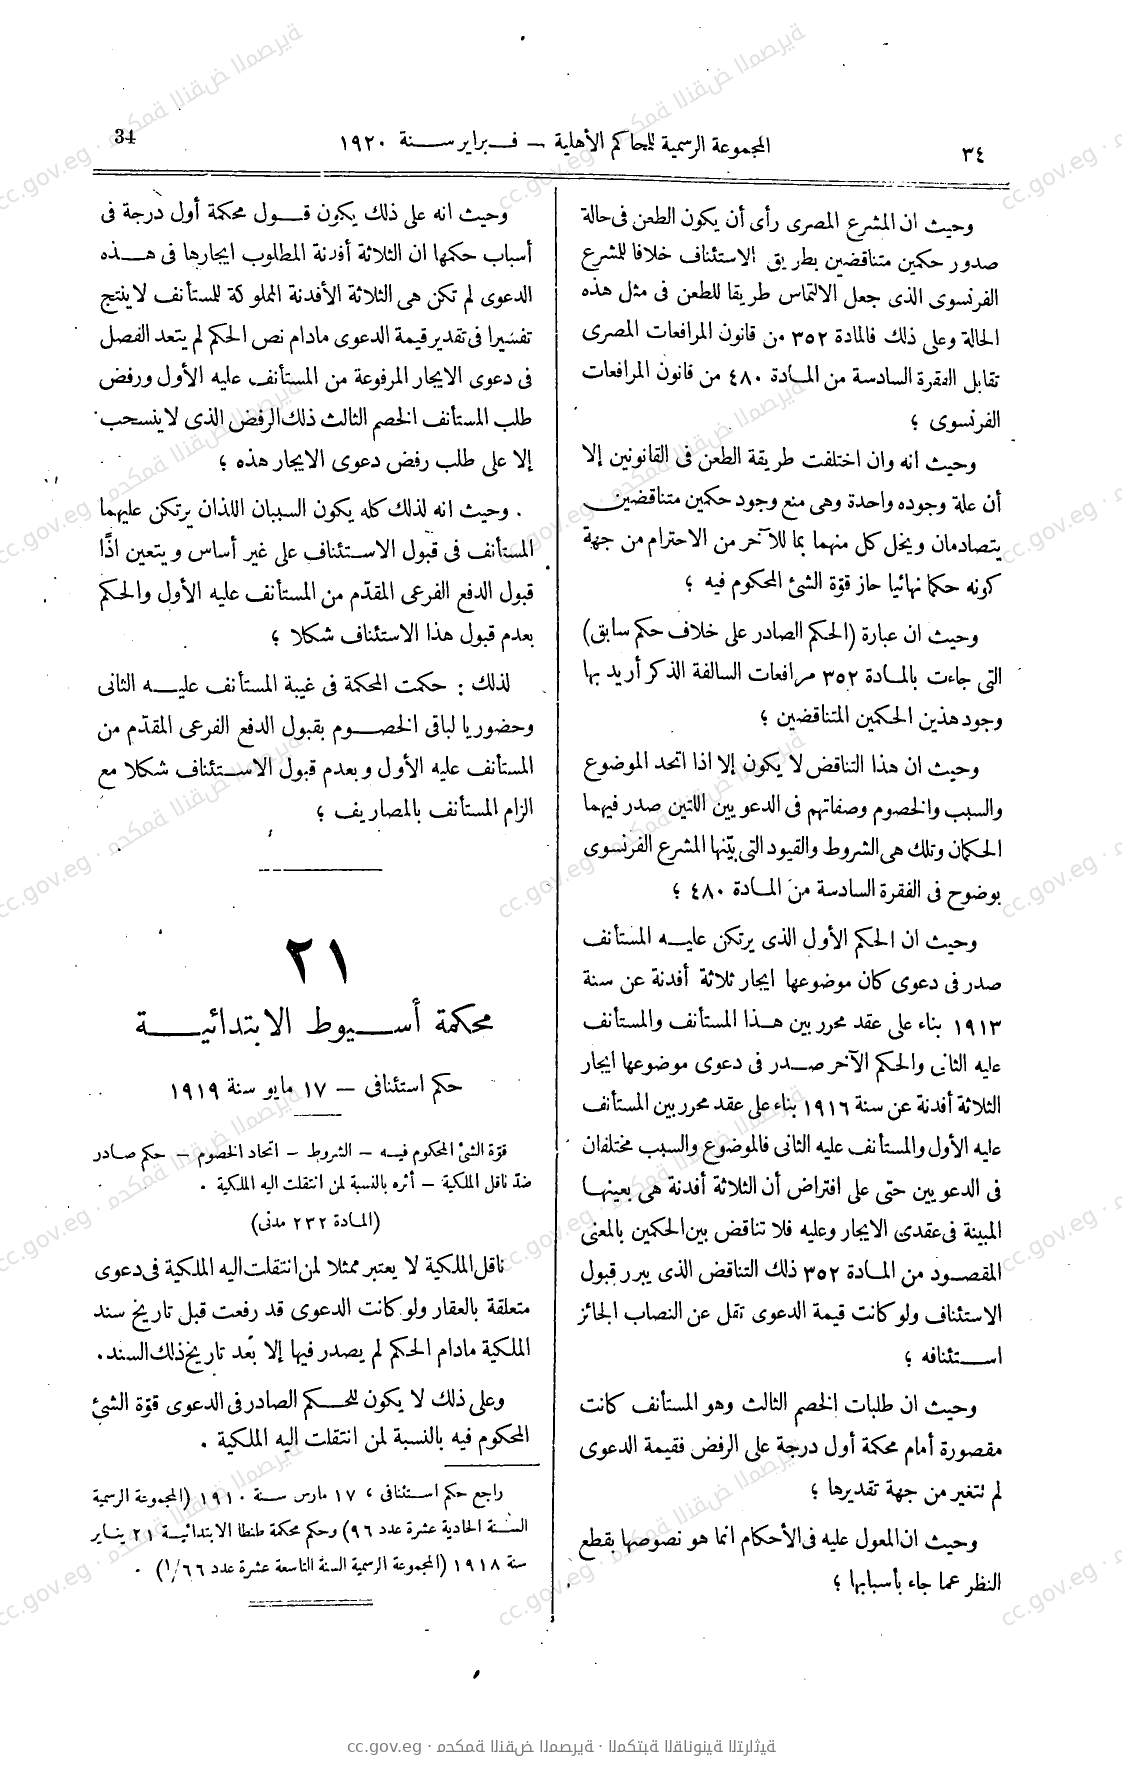 ٣٤
المجموعة الرسمية للمحاكم الأهلية — فبراير سنة ١٩٢٠
34
وحيث ان المشرع المصرى رأى أن يكون الطعن فى حالة
صدور حكمين متناقضين بطريق الاستئناف خلافا للشرع
الفرنسوى الذى جعل الالتماس طريقا للطعن فى مثل هذه
الحالة وعلى ذلك فالمادة ٣٥٢ من قانون المرافعات المصرى
تقابل الفقرة السادسة من المادة ٤٨٠ من قانون المرافعات
الفرنسوى ؛
وحيث انه وان اختلفت طريقة الطعن فى القانونين إلا
أن علة وجوده واحدة وهى منع وجود حكمين متناقضين
يتصادمان ويخل كل منهما بما للآخر من الاحترام من جهة
كونه حكما نهائيا حاز قوّة الشئ المحكوم فيه ؛
وحيث ان عبارة (الحكم الصادر على خلاف حكم سابق)
التى جاءت بالمادة ٣٥٢ مرافعات السالفة الذكر أريد بها
وجود هذين الحكمين المتناقضين ؛
وحيث ان هذا التناقض لا يكون إلا اذا اتحد الموضوع
والسبب والخصوم وصفاتهم فى الدعويين اللتين صدر فيهما
الحكمان وتلك هى الشروط والقيود التى بيّنها المشرع الفرنسوى
بوضوح فى الفقرة السادسة من المادة ٤٨٠ ؛
وحيث ان الحكم الأول الذى يرتكن عليه المستأنف
صدر فى دعوى كان موضوعها ايجار ثلاثة أفدنة عن سنة
١٩١٣ بناء على عقد محرر بين هذا المستأنف والمستأنف
عليه الثانى والحكم الآخر صدر فى دعوى موضوعها ايجار
الثلاثة أفدنة عن سنة ١٩١٦ بناء على عقد محرر بين المستأنف
عليه الأول والمستأنف عليه الثانى فالموضوع والسبب مختلفان
فى الدعويين حتى على افتراض أن الثلاثة أفدنة هى بعينها
المبينة فى عقدى الايجار وعليه فلا تناقض بين الحكمين بالمعنى
المقصود من المادة ٣٥٢ ذلك التناقض الذى يبرر قبول
الاستئناف ولو كانت قيمة الدعوى تقل عن النصاب الجائز
استئنافه ؛
وحيث ان طلبات الخصم الثالث وهو المستأنف كانت
مقصورة أمام محكمة أول درجة على الرفض فقيمة الدعوى
لم تتغير من جهة تقديرها ؛
وحيث ان المعول عليه فى الأحكام انما هو نصوصها بقطع
النظر عما جاء بأسبابها ؛
وحيث انه على ذلك يكون قول محكمة أول درجة فى
أسباب حكمها ان الثلاثة أفدنة المطلوب ايجارها فى هذه
الدعوى لم تكن هى الثلاثة الأفدنة المملوكة للمستأنف لا ينتج
تغييرا فى تقدير قيمة الدعوى مادام نص الحكم لم يتعد الفصل
فى دعوى الايجار المرفوعة من المستأنف عليه الأول ورفض
طلب المستأنف الخصم الثالث ذلك الرفض الذى لا ينسحب
إلا على طلب رفض دعوى الايجار هذه ؛
وحيث انه لذلك كله يكون السببان اللذان يرتكن عليهما
المستأنف فى قبول الاستئناف على غير أساس ويتعين اذًا
قبول الدفع الفرعى المقدّم من المستأنف عليه الأول والحكم
بعدم قبول هذا الاستئناف شكلا ؛
لذلك : حكمت المحكمة فى غيبة المستأنف عليه الثانى
وحضوريا لباقى الخصوم بقبول الدفع الفرعى المقدّم من
المستأنف عليه الأول وبعدم قبول الاستئناف شكلا مع
الزام المستأنف بالمصاريف ؛
٢١
محكمة أسيوط الابتدائية
حكم استئنافى — ١٧ مايو سنة ١٩١٩
قوّة الشئ المحكوم فيه — الشروط — اتحاد الخصوم — حكم صادر
ضدّ ناقل الملكية — أثره بالنسبة لمن انتقلت اليه الملكية .
(المادة ٢٣٢ مدنى)
ناقل الملكية لا يعتبر ممثلا لمن انتقلت اليه الملكية فى دعوى
متعلقة بالعقار ولو كانت الدعوى قد رفعت قبل تاريخ سند
الملكية مادام الحكم لم يصدر فيها إلا بعد تاريخ ذلك السند .
وعلى ذلك لا يكون للحكم الصادر فى الدعوى قوّة الشئ
المحكوم فيه بالنسبة لمن انتقلت اليه الملكية .
راجع حكم استئنافى ، ١٧ مارس سنة ١٩١٠ (المجموعة الرسمية
السنة الحادية عشرة عدد ٩٦) وحكم محكمة طنطا الابتدائية ٢١ يناير
سنة ١٩١٨ (المجموعة الرسمية السنة التاسعة عشرة عدد ١/٦٦) .
cc.gov.eg · محكمة النقض المصرية · المكتبة القانونية التراثية